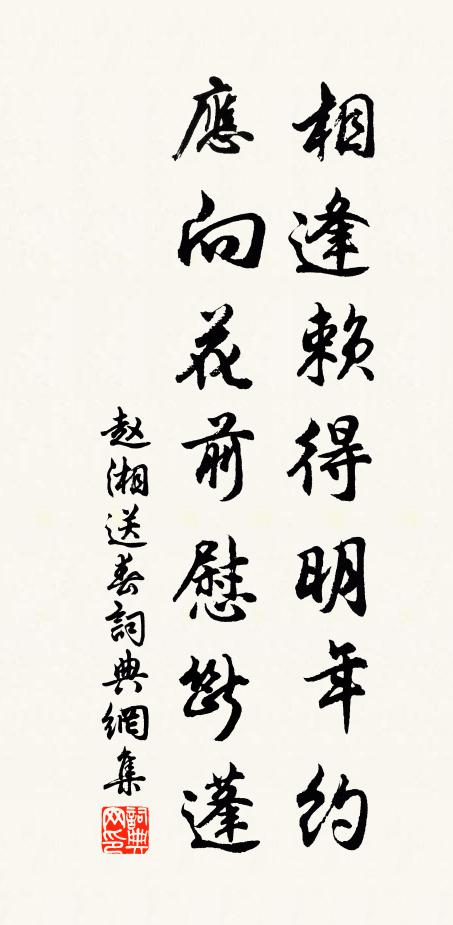 相逢賴得明年約
應向花前慰斷蓬
赵湘送春詞典網集
詞典网印